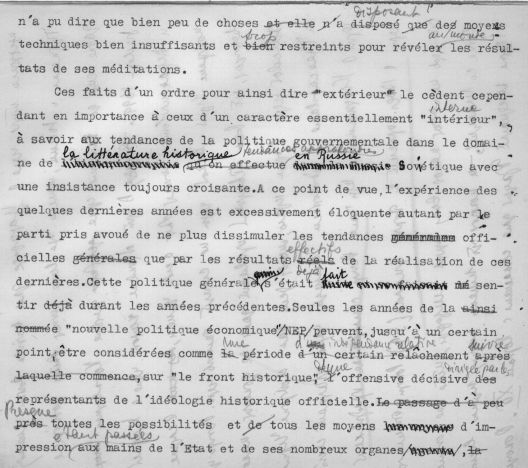 disposant
n'a pu dire que bien peu de choses et elle n'a disposé que des moyens
trop au monde
techniques bien insuffisants et bien restreints pour révéler les résul-
tats de ses méditations.
Ces faits d'un ordre pour ainsi dire "extérieur" le cèdent cepen-
interne
dant en importance à ceux d'un caractère essentiellement "intérieur",
à savoir aux tendances de la politique gouvernementale dans le domai-
la littérature historique tendances en Russie
ne de qu'on effectue Sovétique avec
une insistance toujours croisante.A ce point de vue,l'expérience des
quelques dernières années est excessivement éloquente autant par le
parti pris avoué de ne plus dissimuler les tendances générales offi-
effectifs
cielles générales que par les résultats réels de la réalisation de ces
déjà fait
dernières.Cette politique générale s'était sen-
tir déjà durant les années précédentes.Seules les années de la ainsi
nommée "nouvelle politique économique"/NEP/peuvent,jusqu'à un certain
une relative suivie
point,être considérées comme la période d'un certain relâchement après
d'une
laquelle commence,sur "le front historique", l'offensive décisive des
représentants de l'idéologie historique officielle.Le passage d'à peu
Presque
près toutes les possibilités et de tous les moyens d'im-
étant passés
pression aux mains de l'Etat et de ses nombreux organes ,la